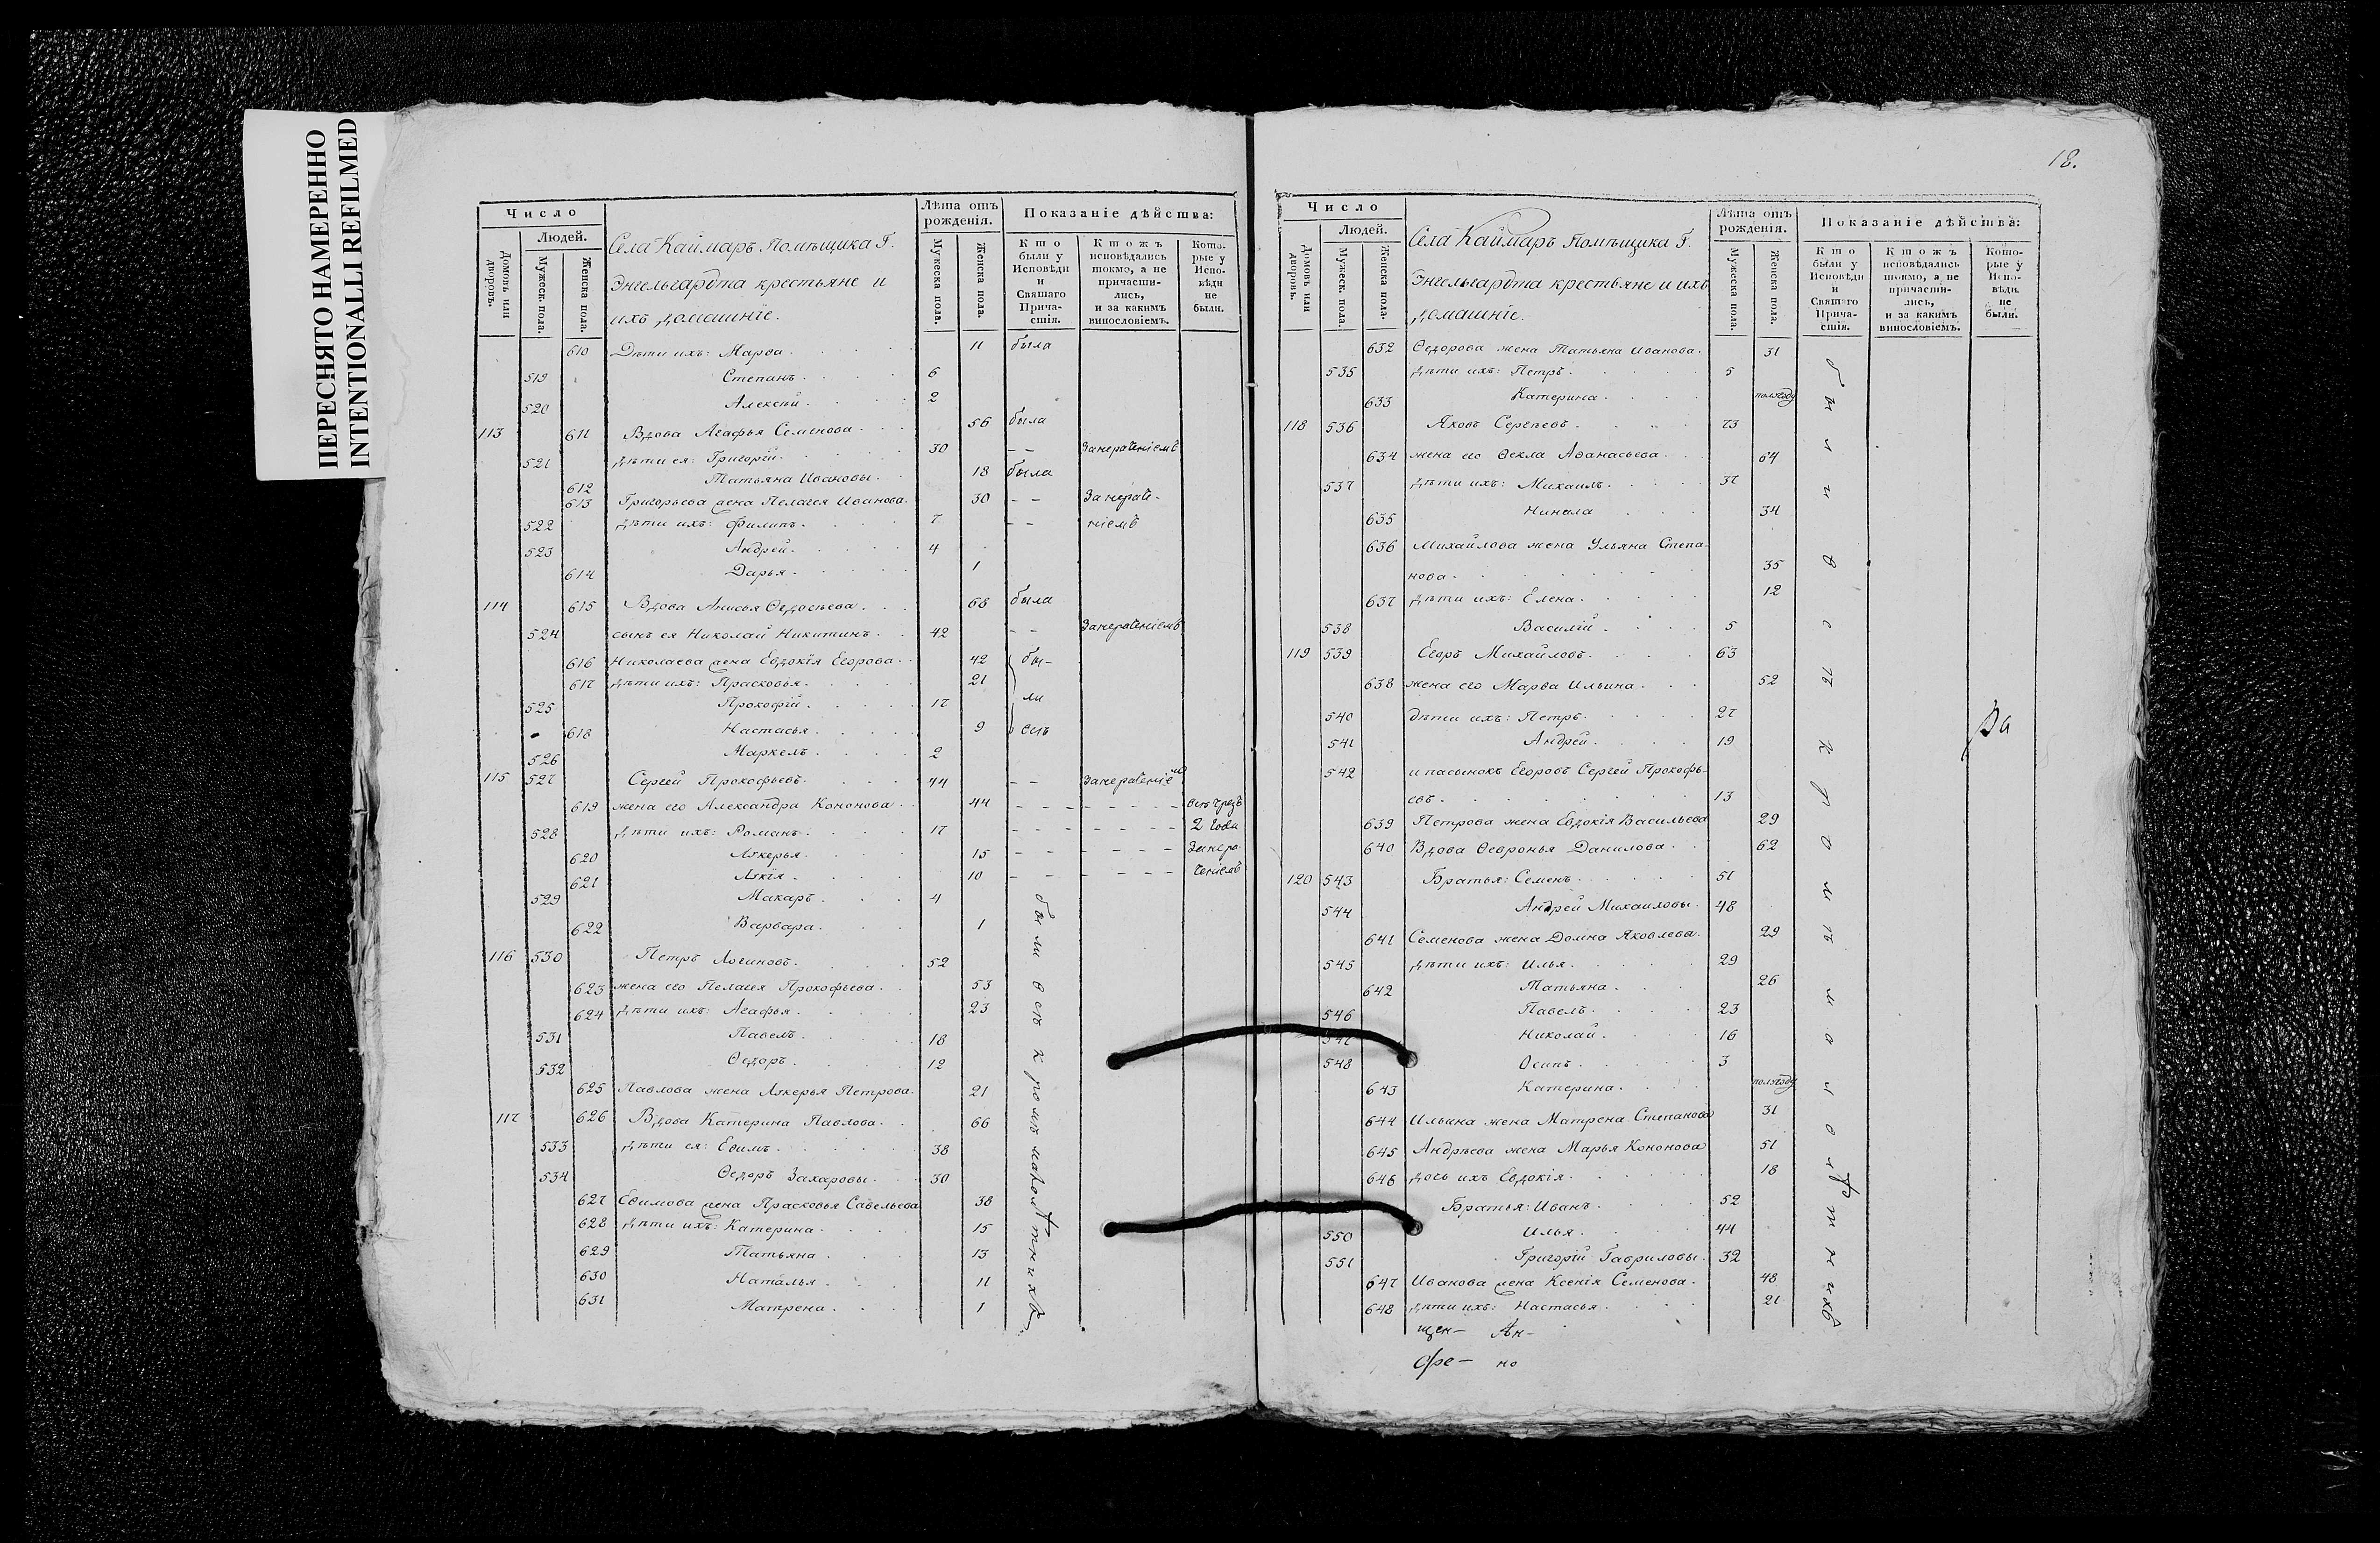 ПЕРЕСНЯТО НАМЕРЕННО
INTENTIONALLI REFILMED
Число
Людей.
Домовъ или дворовъ.
Мужеск. пола.
Женска пола.
Села Каймаръ Помѣщика Г.
Энгельгардта крестьяне и
ихъ домашнiе.
Лѣта отъ рожденiя.
Мужеска пола.
Женска пола.
Показанiе дѣйства:
Кто были у Исповѣди и Святаго Причастiя.
Ктожъ исповѣдались токмо, а не причастились, и за какимъ винословiемъ.
Которые у Исповѣди не были.
610 Дѣти ихъ: Марѳа 11 была
519 Степанъ 6
520 Алексѣй 2
113 611 Вдова Агафья Семенова 56 была
521 дѣти ея: Григорiй 30
612 Татьяна Ивановы 18 была
613 Григорьева жена Пелагея Иванова 30
522 дѣти ихъ: Филипъ 7
523 Андрей 4
614 Дарья 1
114 615 Вдова Анисья Ѳедосѣева 68 была
524 сынъ ея Николай Никитинъ 42
616 Николаева жена Евдокiя Егорова 42 бы-
617 дѣти ихъ: Прасковья 21
525 Прокофiй 17 ли
618 Настасья 9 всѣ
526 Маркелъ 2
115 527 Сергей Прокофьевъ 44
619 жена его Александра Кононова 44
528 дѣти ихъ: Романъ 17 2 года
620 Лукерья 15
621 10
529 Макаръ 4
622 Варвара 1
116 530 Петръ Логиновъ 52
623 жена его Пелагея Прокофьева 53
624 дѣти ихъ: Агафья 23
531 Павелъ 18
532 Ѳедоръ 12
625 Павлова жена Лукерья Петрова 21
117 626 Вдова Катерина Павлова 66
533 дѣти ея: Ефимъ 38
534 Ѳедоръ Захаровы 30
627 Ефимова жена Прасковья Савельева 38
628 дѣти ихъ: Катерина 15
629 Татьяна 13
630 Наталья 11
631 Матрена 1
были всѣ кромѣ малолѣтнихъ
18.
Число
Людей.
Домовъ или дворовъ.
Мужеск. пола.
Женска пола.
Села Каймаръ Помѣщика Г.
Энгельгардта крестьяне и ихъ
домашнiе.
Лѣта отъ рожденiя.
Мужеска пола.
Женска пола.
Показанiе дѣйства:
Кто были у Исповѣди и Святаго Причастiя.
Ктожъ исповѣдались токмо, а не причастились, и за какимъ винословiемъ.
Которые у Исповѣди не были.
632 Ѳедорова жена Татьяна Иванова 31
535 дѣти ихъ: Петръ 5
633 Катерина полгоду
118 536 Яковъ Сергѣевъ 73
634 жена его Ѳекла Аѳанасьева 64
537 дѣти ихъ: Михаилъ 37
635 34
636 Михайлова жена Ульяна Степа-
нова 35
637 дѣти ихъ: Елена 12
538 Василiй 5
119 539 Егоръ Михайловъ 63
638 жена его Марѳа Ильина 52
540 дѣти ихъ: Петръ 27
541 Андрей 19
542 и пасынокъ Егоровъ Сергей Прокофь-
евъ 13
639 Петрова жена Евдокiя Васильева 29
640 Вдова Ѳевронья Данилова 62
120 543 Братья: Семенъ 51
544 Андрей Михаиловы 48
641 Семенова жена Домна Яковлева 29
545 дѣти ихъ: Илья 29
642 Татьяна 26
546 Павелъ 23
547 Николай 16
548 Осипъ 3
643 Катерина полгоду
644 Ильина жена Матрена Степанова 31
645 Андрѣева жена Марья Кононова 51
646 дочь ихъ Евдокiя 18
Братья: Иванъ 52
550 Илья 44
551 Григорiй Гавриловы 32
647 Иванова жена Ксенiя Семенова 48
648 дѣти ихъ: Настасья 21
были всѣ кромѣ малолѣтнихъ
щен- Ан-
но